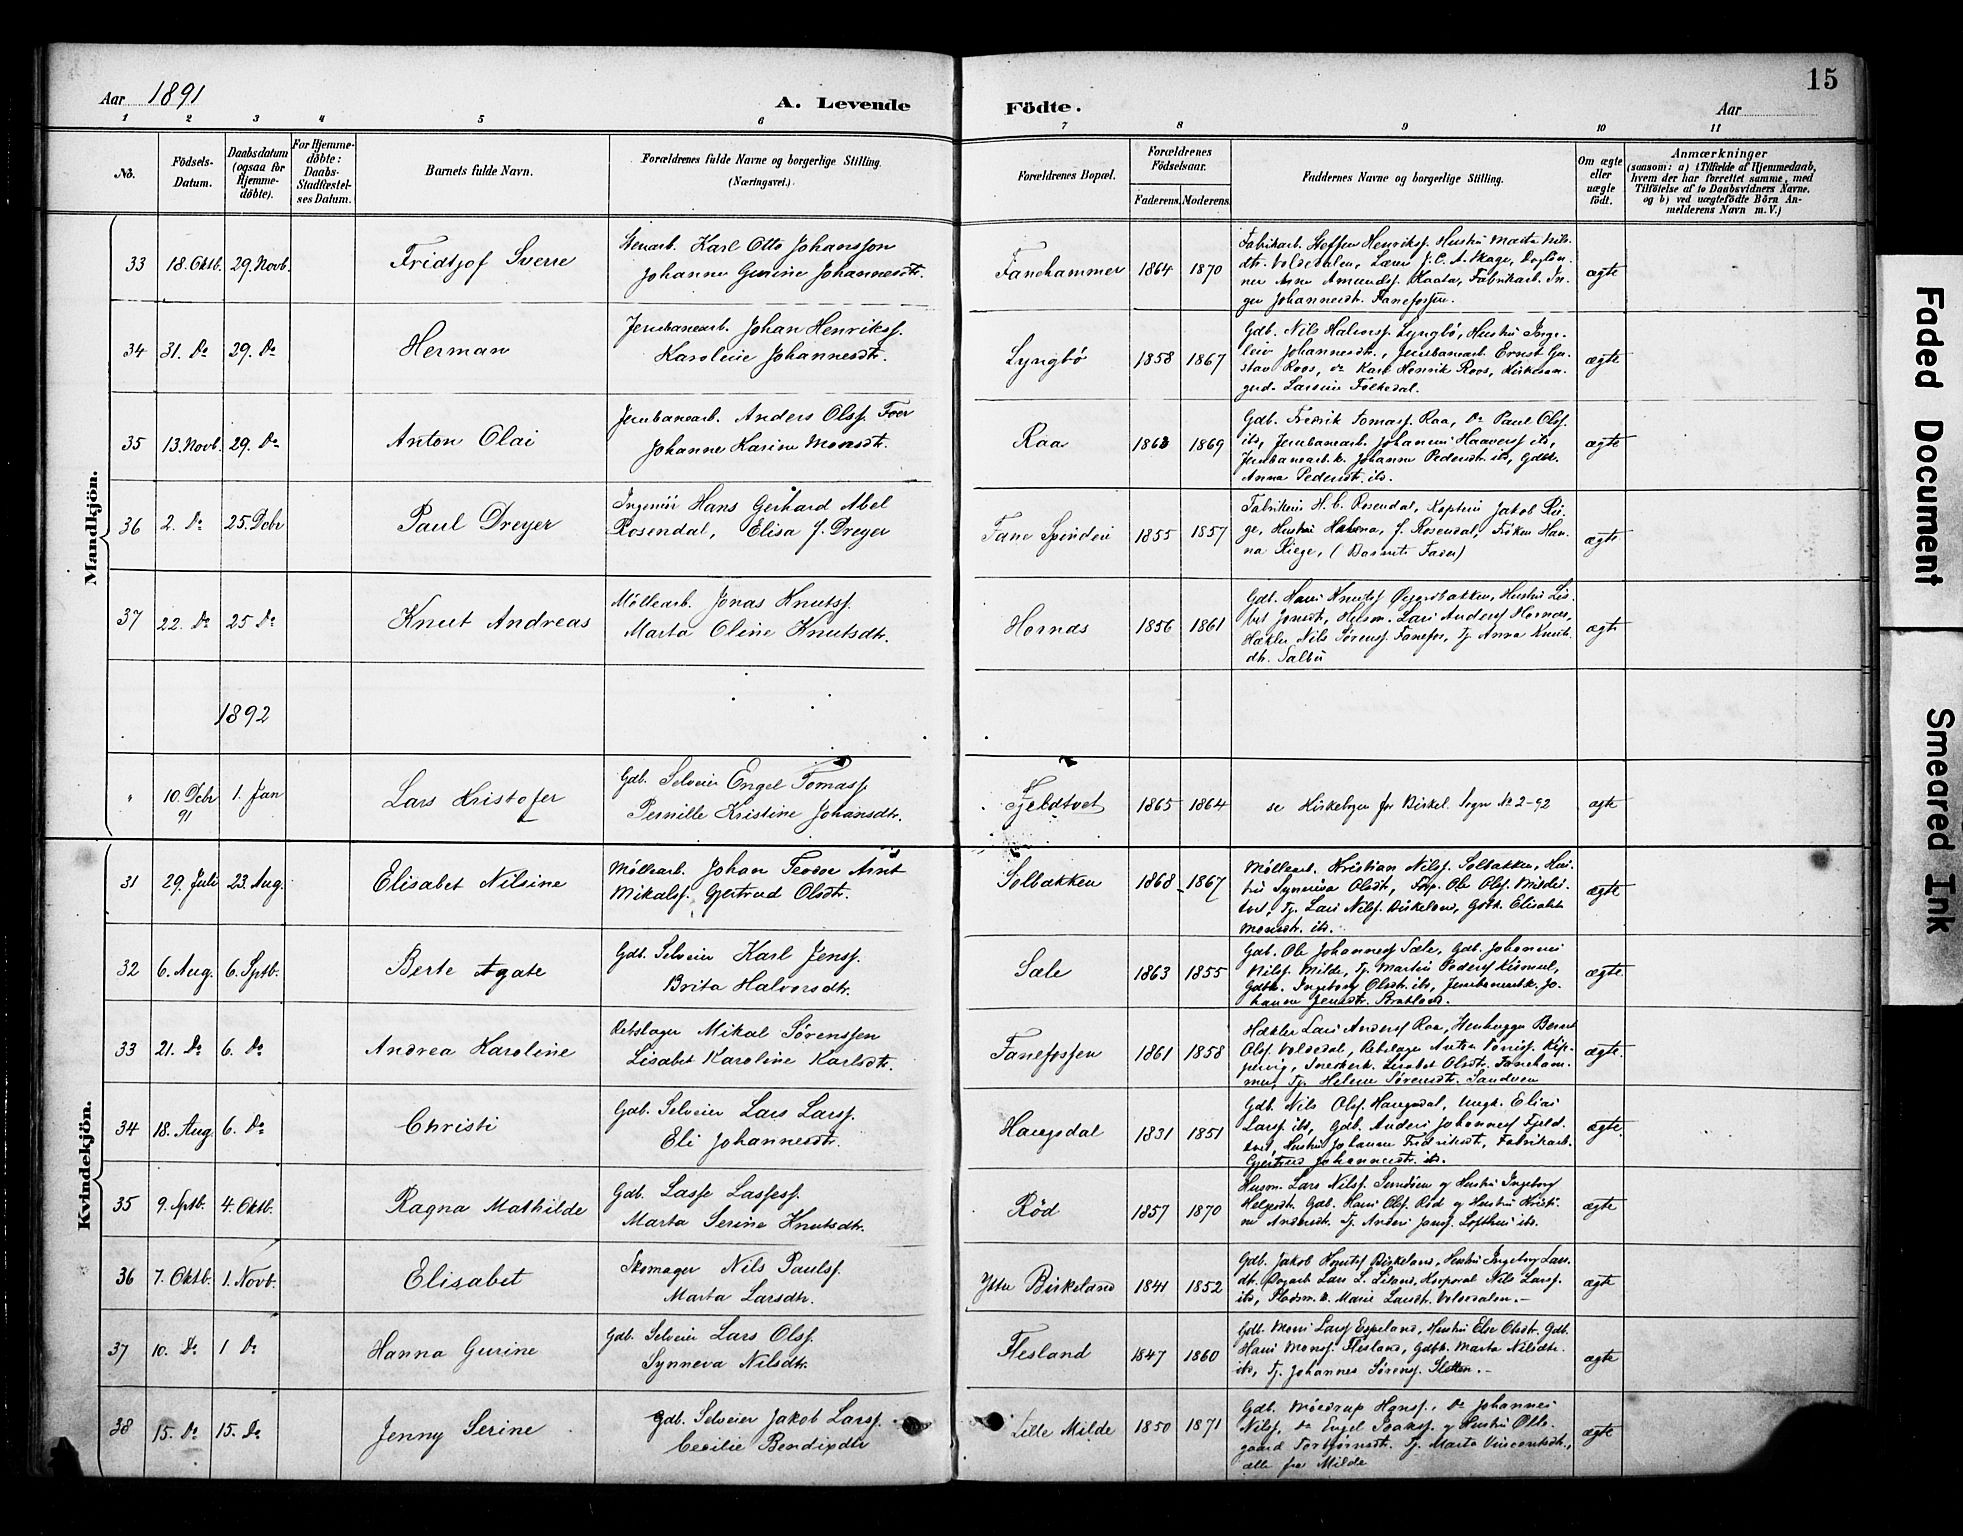 Aar 1891
A. Levende Födte.
Aar
15
1 2 3 4 5 6 7 8 9 10 11
No.
Födsels-Datum.
Daabsdatum (ogsaa for Hjemme-døbte).
For Hjemme-døbte: Daabs-Stadfæstel-ses Datum.
Barnets fulde Navn.
Forældrenes fulde Navne og borgerlige Stilling. (Næringsvei.)
Forældrenes Bopæl.
Forældrenes Födselsaar.
Faderens. Moderens.
Faddernes Navne og borgerlige Stilling.
Om ægte eller uægte født.
Anmærkninger
(saasom: a) i Tilfælde af Hjemmedaab, hvem der har forrettet samme, med Tilföielse af to Daabsvidners Navne. og b) ved uægtefödte Börn An-melderens Navn m. V.)
Mandkjön.
33 18. Oktb. 29. Novb. Fridtjof Sverre
Stenarb. Karl Otto Johansson
Johanne Gurine Johannesdtr.
Fanehammer 1864 1870
Fabrikarb. Steffen Henriksf. Hustru Marta Nils-
dtr. Voldedalen, Lærer J. C. A. Skage,
Anne Amundsf. Fabrikarb. In-
ger Johannesdtr. Fanefossen.
ægte
34 31. Do 29. Do Herman
Jernbanearb. Johan Henriksf.
Karoline Johannesdtr.
Lyngbø 1858 1867
Gdb. Nils Halvorsf. Lyngbø, Hustru Inge-
leiv Johannesdtr., Jernbanearb. Ernst Gu-
stav Roos, do Karl Henrik Roos, Kirkesan-
gerd. Larsine Folkedal.
ægte
35 13. Novb. 29. Do Anton Olai
Jernbanearb. Anders Olsf.
Johanne Karine Monsdtr.
Raa 1863 1869
Gdb. Fredrik Tomasf. Raa, Do Paul Olsf.
ibd, Jernbanearb. Johannes Haaversf ibd,
Jernbanearb.k. Johanne Pedersdtr. ibd, Gdbk.
Anna Pedersdtr. ibd.
ægte
36 2. Do 25. Debr Paul Dreyer
Ingeniør Hans Gerhard Abel
Rosendal, Elisa J. Dreyer
Fane Spinderi 1855 1857
Fabrikeier H. C. Rosendal, Kaptein Jakob Rie-
ge, Hustru J. Rosendal, Frøken Han-
na Riege, (Barnets Fader)
ægte
37 22. Do 25 Do Knut Andreas
Møllearb. Jonas Knutsf.
Marta Oline Knutsdtr.
Hornas 1856 1861
Gdb. Hans Knutsf Øvredbakken, Hustru Lis-
bet Jonsdtr, Husm. Lars Andersf Hornas,
Hækler Nils Sørensf. Fanefos, Tj. Anna Knuts-
dtr. Salbu
ægte
1892
" 10. Debr 91 1. Jan Lars Kristofer
Gdb. Selveier Engel Tomasf
Pernille Kristine Johansdtr.
Fjeldtvet 1865 1864
se Kirkebogen for Birkel. Sogn No 2-92
ægte
Kvindekjön.
31 29. Juli 23. Aug. Elisabet Nilsine
Møllearb. Johan Teodor Arnt
Mikalsf. Gjertrud Olsdtr.
Solbakken 1868 1867
Møllearb. Kristian Nilsf. Solbakken, Hus-
tru Synneva Olsdtr, Ole Olsf. Mildes-
tvet, Tj. Lars Nilsf. Birkeland, Gdbk. Elisabet
Monsdtr. ibd.
ægte
32 6. Aug. 6. Sptb. Berte Agate
Gdb. Selveier Karl Jensf.
Brita Halvorsdtr.
Sæle 1863 1855
Gdb. Ole Johannesf Sæle, Gdb. Johannes
Nilsf. Milde, Tj. Martin Pedersf Kismul,
Gdbk. Ingeborg Olsdtr. ibd, Jernbanearb.k. Jo-
hanne Jensdtr. Stratland.
ægte
33 21. Do 6. Do Andrea Karoline
Rebslager Mikal Sørenssen
Lisabet Karoline Karlsdtr.
Fanefossen 1861 1858
Hækler Lars Andersf Raa, Husbygger Bernt
Olsf. Voldedal, Rebslager Anton Kip-
pervig, Snedkerk. Lisabet Olsdtr. Faneham-
mer, Tj. Helene Sørensdtr. Sandven
ægte.
34 18. Aug. 6. Do Christi
Gdb. Selveier Lars Larsf.
Eli Johannesdtr.
Haugsdal 1831 1851
Gdb. Nils Olsf. Haugsdal, Ungk. Elias
Larsf ibd, Gdb. Anders Johannesf Fjeld-
tvet, Hustru Johanne Fredriksdtr, Fabrikarb.
Gjertrud Johannesdtr. ibd.
ægte.
35 9. Sptb. 4. Oktb. Ragna Mathilde
Gdb. Lasse Lassesf.
Marta Serine Knutsdtr.
Rød 1857 1870
Husm. Lars Nilsf. Sandven og Hustru Ingeborg
Helgesdtr. Gdb. Hans Olsf. Rød og Hustru Kristi-
ne Andersdtr. Tj. Anders Jensf. Lofthus ibd.
ægte
36 7. Oktb. 1. Novb. Elisabet
Skomager Nils Paulsf.
Marta Larsdtr.
Ytre Birkeland 1841 1852
Gdb. Jakob Knutsf Birkeland, Hustru Ingeborg Lars-
dtr. Lars L. Liland, Korporal Nils Larsf.
ibd, Marie Larsdtr. Voldedalen.—
ægte
37 10. Do 1 Do Hanna Gurine
Gdb. Selveier Lars Olsf.
Synneva Nilsdtr.
Flesland 1847 1860
Gdb. Mons Larsf Espeland, Hustru Else Olsdtr. Gdb.
Hans Monsf. Flesland, Gdbk. Marta Nilsdtr.
ibd, Tj. Johannes Sørensf. Sletten.—
ægte
38 15. Do 15. Do Jenny Serine
Gdb. Selveier Jakob Larsf.
Cecilie Bendixdtr
Lille Milde 1850 1871
Gdb. Mildrup Hansf., Do Johannes
Nilsf, Do Engel Isaksf. og Hustru Olle-
gaard Torbjørnsdtr. Tj. Marta Vincentsdtr.,
alle fra Milde
ægte
Faded Document
Smeared Ink